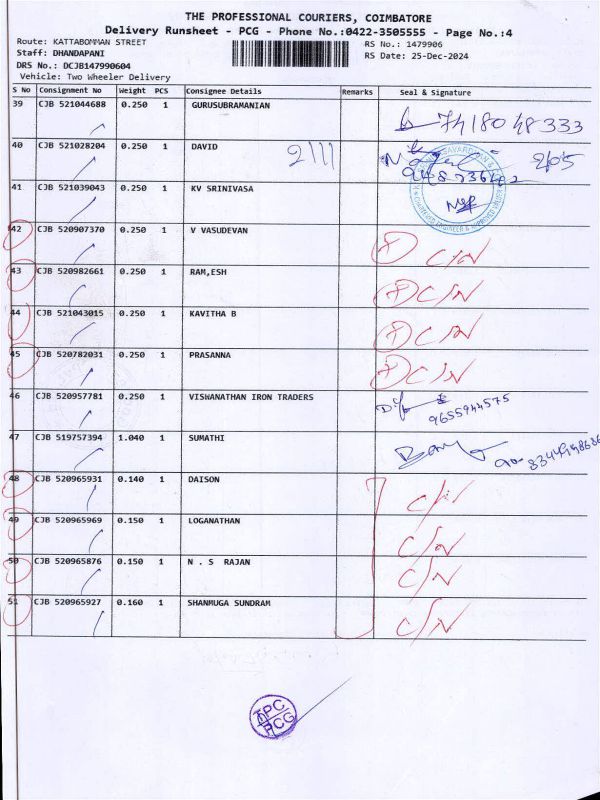 THE PROFESSIONAL COURIERS, COIMBATORE
Delivery Runsheet - PCG - Phone No.:0422-3505555 - Page No.:4
Route: KATTABOMMAN STREET
Staff: DHANDAPANI
DRS No.: DCJB147990604
Vehicle: Two Wheeler Delivery
RS No.: 1479906
RS Date: 25-Dec-2024
S No Consignment No Weight PCS Consignee Details Remarks Seal & Signature
39 CJB 521044688 0.250 1 GURUSUBRAMANIAN 7418048333
40 CJB 521028204 0.250 1 DAVID
41 CJB 521039043 0.250 1 KV SRINIVASA
42 CJB 520907370 0.250 1 V VASUDEVAN C/N
43 CJB 520982661 0.250 1 RAM,ESH C/N
44 CJB 521043015 0.250 1 KAVITHA B C/N
45 CJB 520782031 0.250 1 PRASANNA C/N
46 CJB 520957781 0.250 1 VISHANATHAN IRON TRADERS 9655944575
47 CJB 519757394 1.040 1 SUMATHI
48 CJB 520965931 0.140 1 DAISON C/N
49 CJB 520965969 0.150 1 LOGANATHAN C/N
50 CJB 520965876 0.150 1 N . S RAJAN C/N
51 CJB 520965927 0.160 1 SHANMUGA SUNDRAM C/N
TPC
PCG